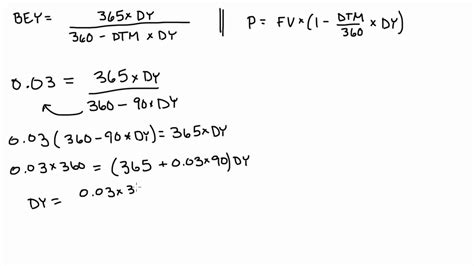 BEY = 365×DY / 360 - DTM × DY || P = FV×(1 - DTM/360 × DY)
0.03 = 365×DY / 360 - 90×DY
0.03(360-90×DY) = 365×DY
0.03×360 = (365 + 0.03×90)DY
DY = 0.03×3